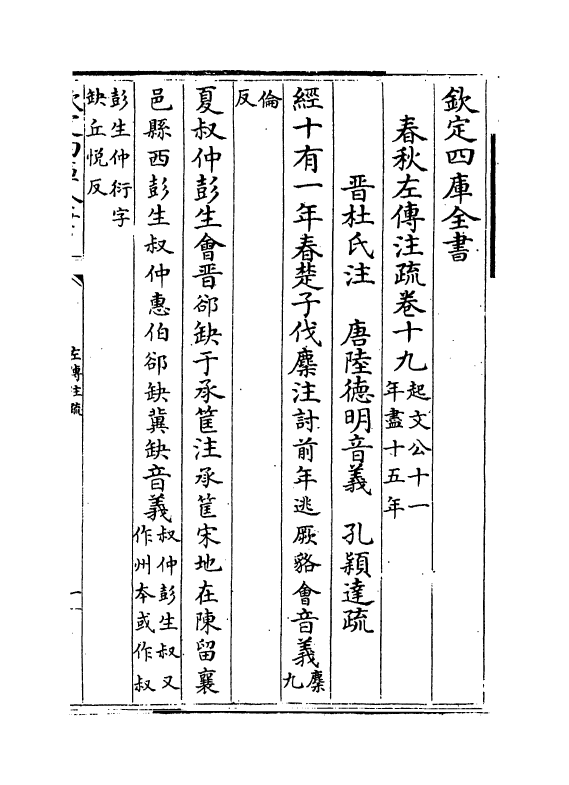 欽定四庫全書
春秋左傳注疏卷十九起文公十一
年盡十五年
晋杜氏注 唐陸德明音義 孔穎達疏
經十有一年春楚子伐麇注討前年逃厥貉會音義麇九
倫反
夏叔仲彭生會晋郤缺于承筐注承筐宋地在陳留襄
邑縣西彭生叔仲惠伯郤缺冀缺音義叔仲彭生叔又
作州本或作叔
彭生仲衍字
缺丘悦反
左傳注疏
一